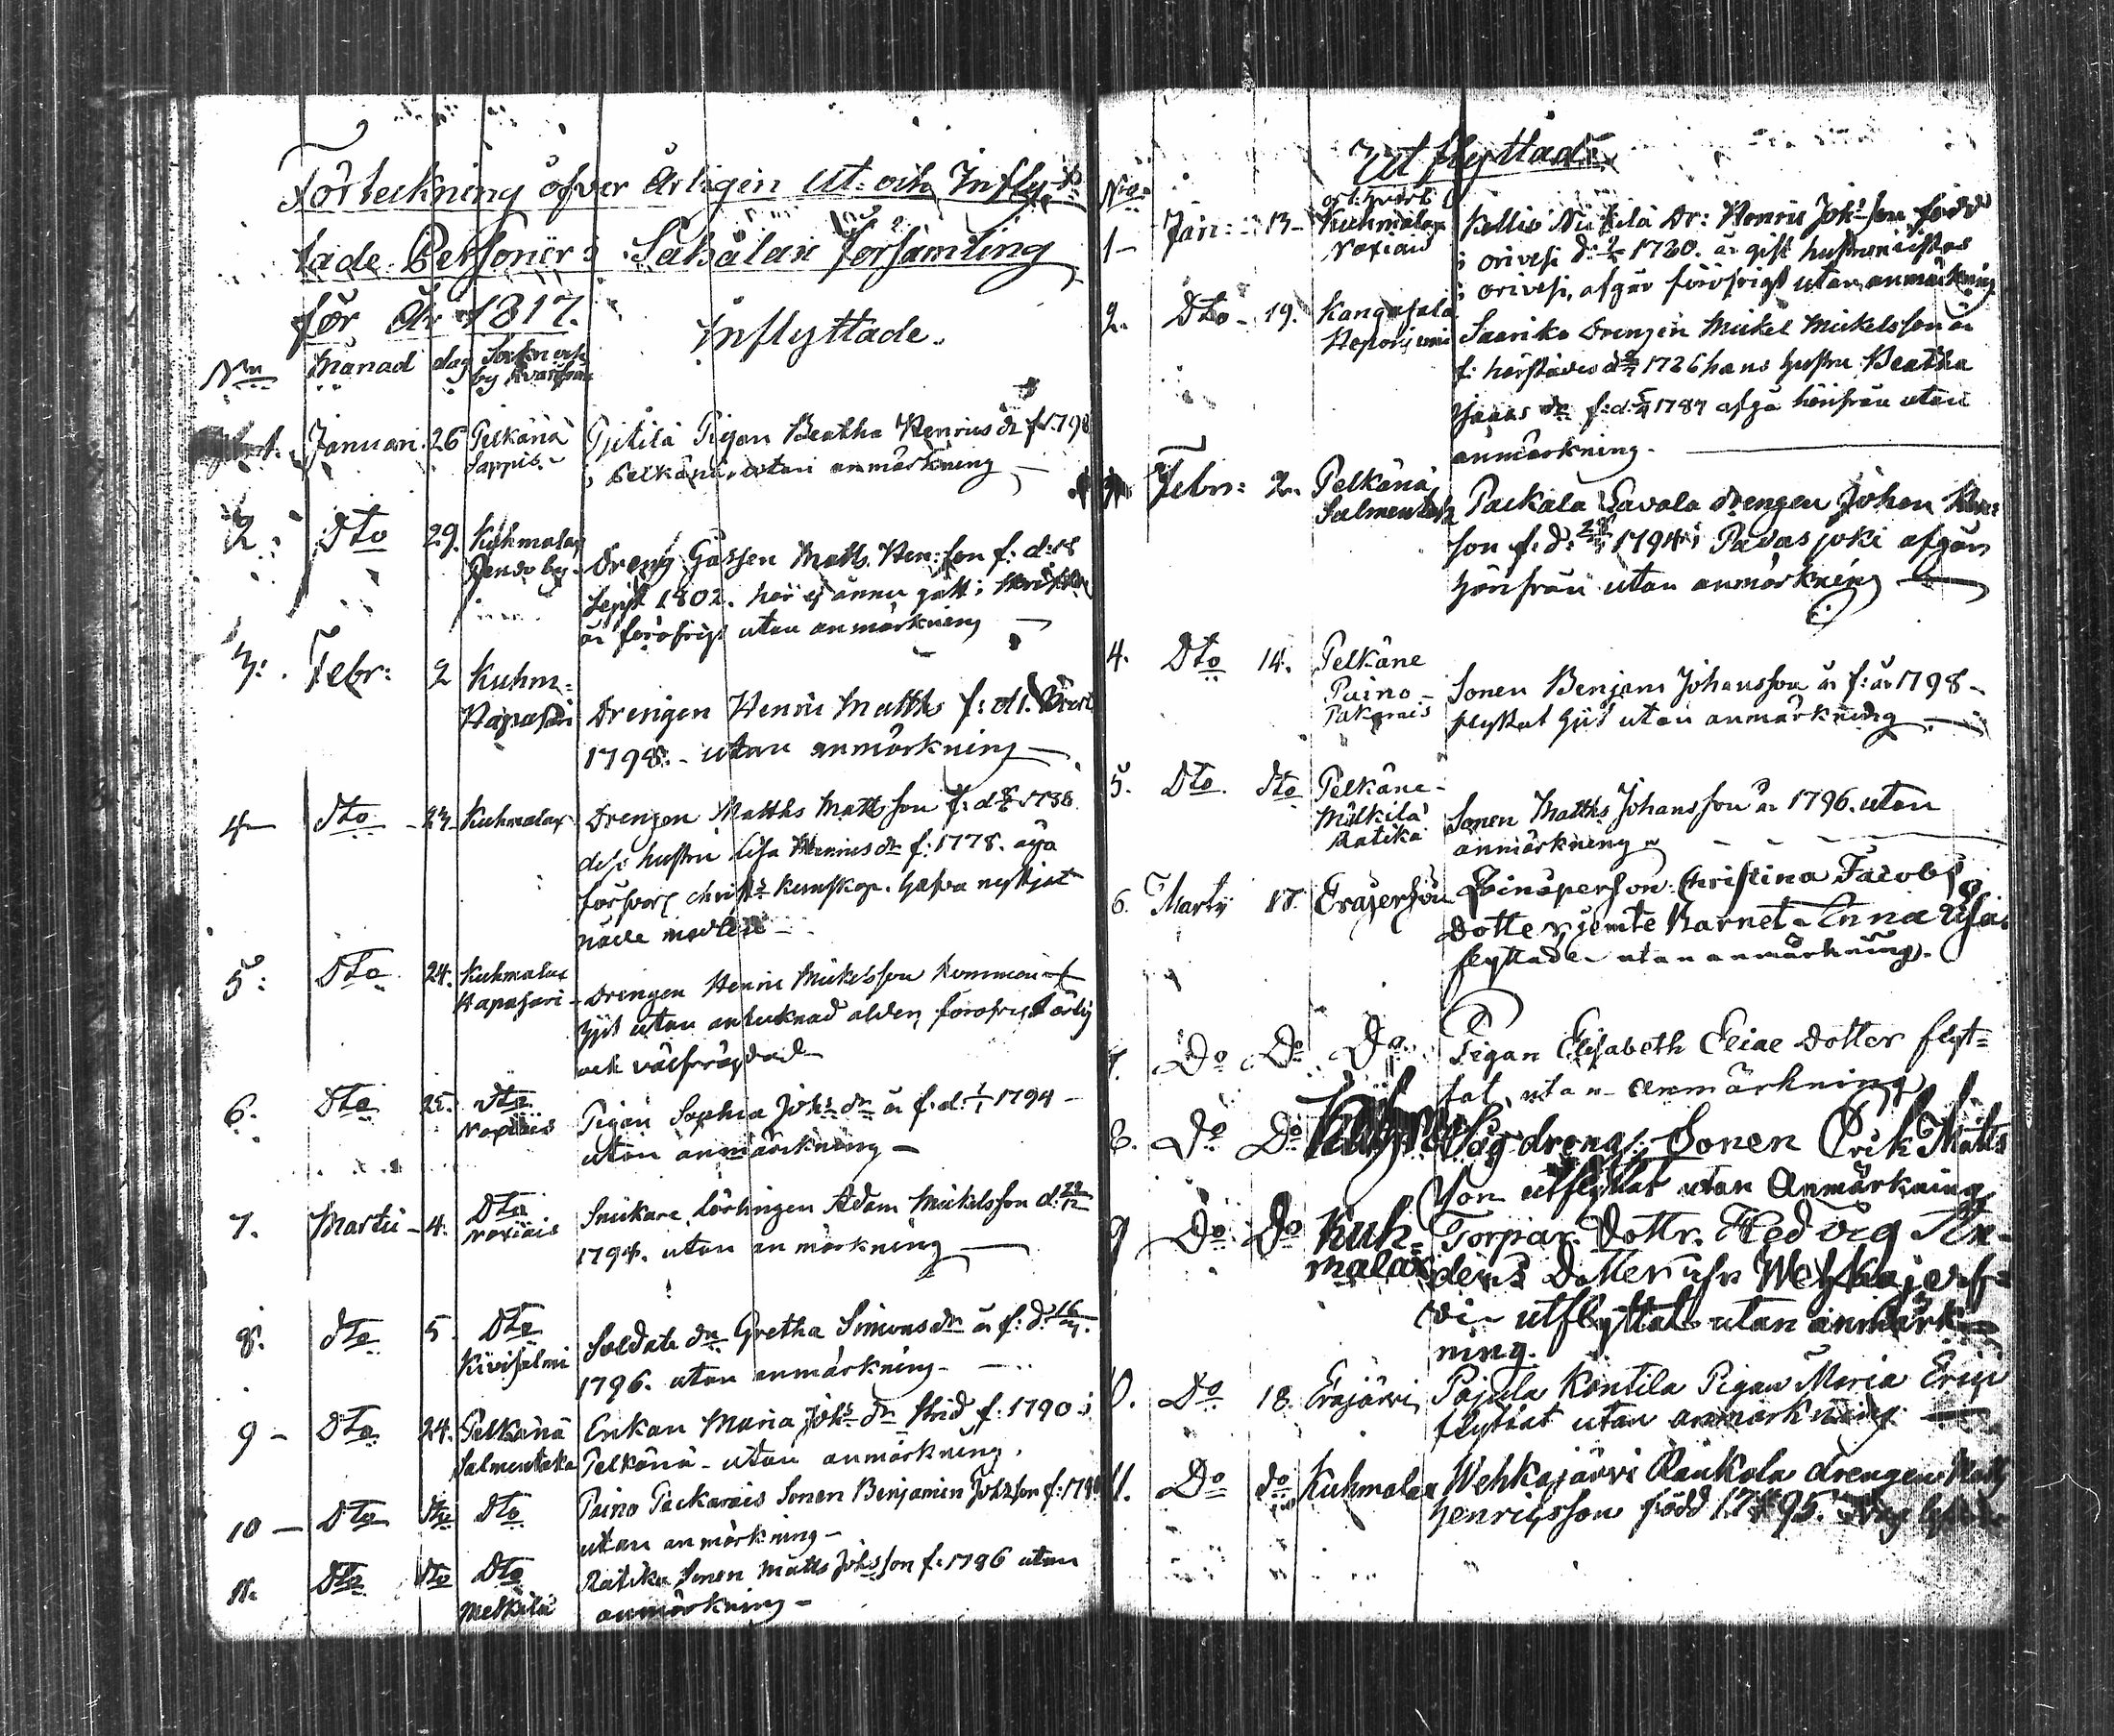 Förteckning öfver Årligen Ut- och Infly-
tade Personer i Sahalax Församling
för År 1817.
Inflyttade.
Nro Månad dag Sockn och
by hvarifrån
Januari 26 Pelkänä Pjetilä Pigan Beatha Henrics dr f. 1798
Sappis i Pelkäne utan anmärkning
2. Dto 29. Kuhmalax
by Dreng Gåssen Matts Hen:son f: d: 18
Sept 1802. här ej ännu gått i
är föröfrigt utan anmärkning
3. Febr: 2 Kuhm=
Hapasari Drengen Henric Matths f: d 1.
1798. - utan anmärkning
4 Dto 23 Kuhmalax Drengen Matths Mattsson f: d 1738
dess hustru Lisa Henricsdr f: 1778. äga
försvarl christs kunskap. hafva nyttjat
5: Dto 24. Kuhmalax
Hapasari - Drengen Henric Mickelsson kommen
hjit utan antecknad ålder, föröfrigt ärlig
och välfrägdad
6. Dto 25. Dto
Noxiais Pigan Sophia Johs dr är f. d: 1/1 1794 -
utan anmärkning -
7. Martii - 4. Dto
Noxiais Snickare Lärlingen Adam Mickelsson d: 1794. utan anmärkning
8. dto 5. Dto
Kivisalmi Soldats dr Gretha Simonsdr är f: d. 16
1796. utan anmärkning -
9 - Dto 24. Pelkänä Enkan Maria Johs dr Strid f: 1790 i
Salmentaka Pelkänä - utan anmärkning.
10 - Dto dto Dto Paino Packarais Sonen Benjamin Johsson f: 1798
utan anmärkning -
11. Dto dto Dto Ratika Sonen Matts Johsson f: 1786 utan
Melkilä anmärkning -
Utflyttade
Nro
ort. hvart
1 - Jan: - 13 - Kuhmalax
Noxiais Kellis Nickilä Dr: Henric Johsson född
i Orivesi 1730. är gift hustrun
i Orivesi, afgår föröfrigt utan anmärkning
2. Dto - 19. Kangasala
Saarika Drengen Mickel Mickelsson är
f. härstädes 1726 hans hustru Beatha
dr f: d: 1787 afgå härifrån utan
anmärkning.
Febr: 2. Pelkänä
Salmentaka Packala Lavola drengen Johan
son f: d: 1794 i Padasjoki afgår
härifrån utan anmärkning
4. Dto 14. Pelkäne
Paino -
Pakarais Sonen Benjam Johansson är f: år 1798 -
flyttat hjit utan anmärkning
5. Dto. dto Pelkäne -
Mälkilä
Ratika Sonen Matths Johansson är 1796. utan
anmärkning
6. Martii 17. Erajerfvi Qvinsperson Christina Jacobs
Dotter jemte Barnet Anna Lisa
flyttade utan anmärkning.
7. Do Do Do Pigan Elisabeth Eliae Dotter flyt=
tat utan anmärkning
8. Do Do Sågdreng. Sonen Erik Matts
son utflyttat utan Anmärkning
9 Do Do Kuh=
malax Torpar. Dottr. Hedvig An-
ders Dotter ifrån Wehkajerf=
vi utflyttat utan anmärk=
ning.
10. Do 18. Erajärvi Pajula Kontila Pigan Maria Eric
flyttat utan anmärkning
11. Do do Kuhmalax Wehkajärvi Raukola drengen Matts
Henricsson född 1795.